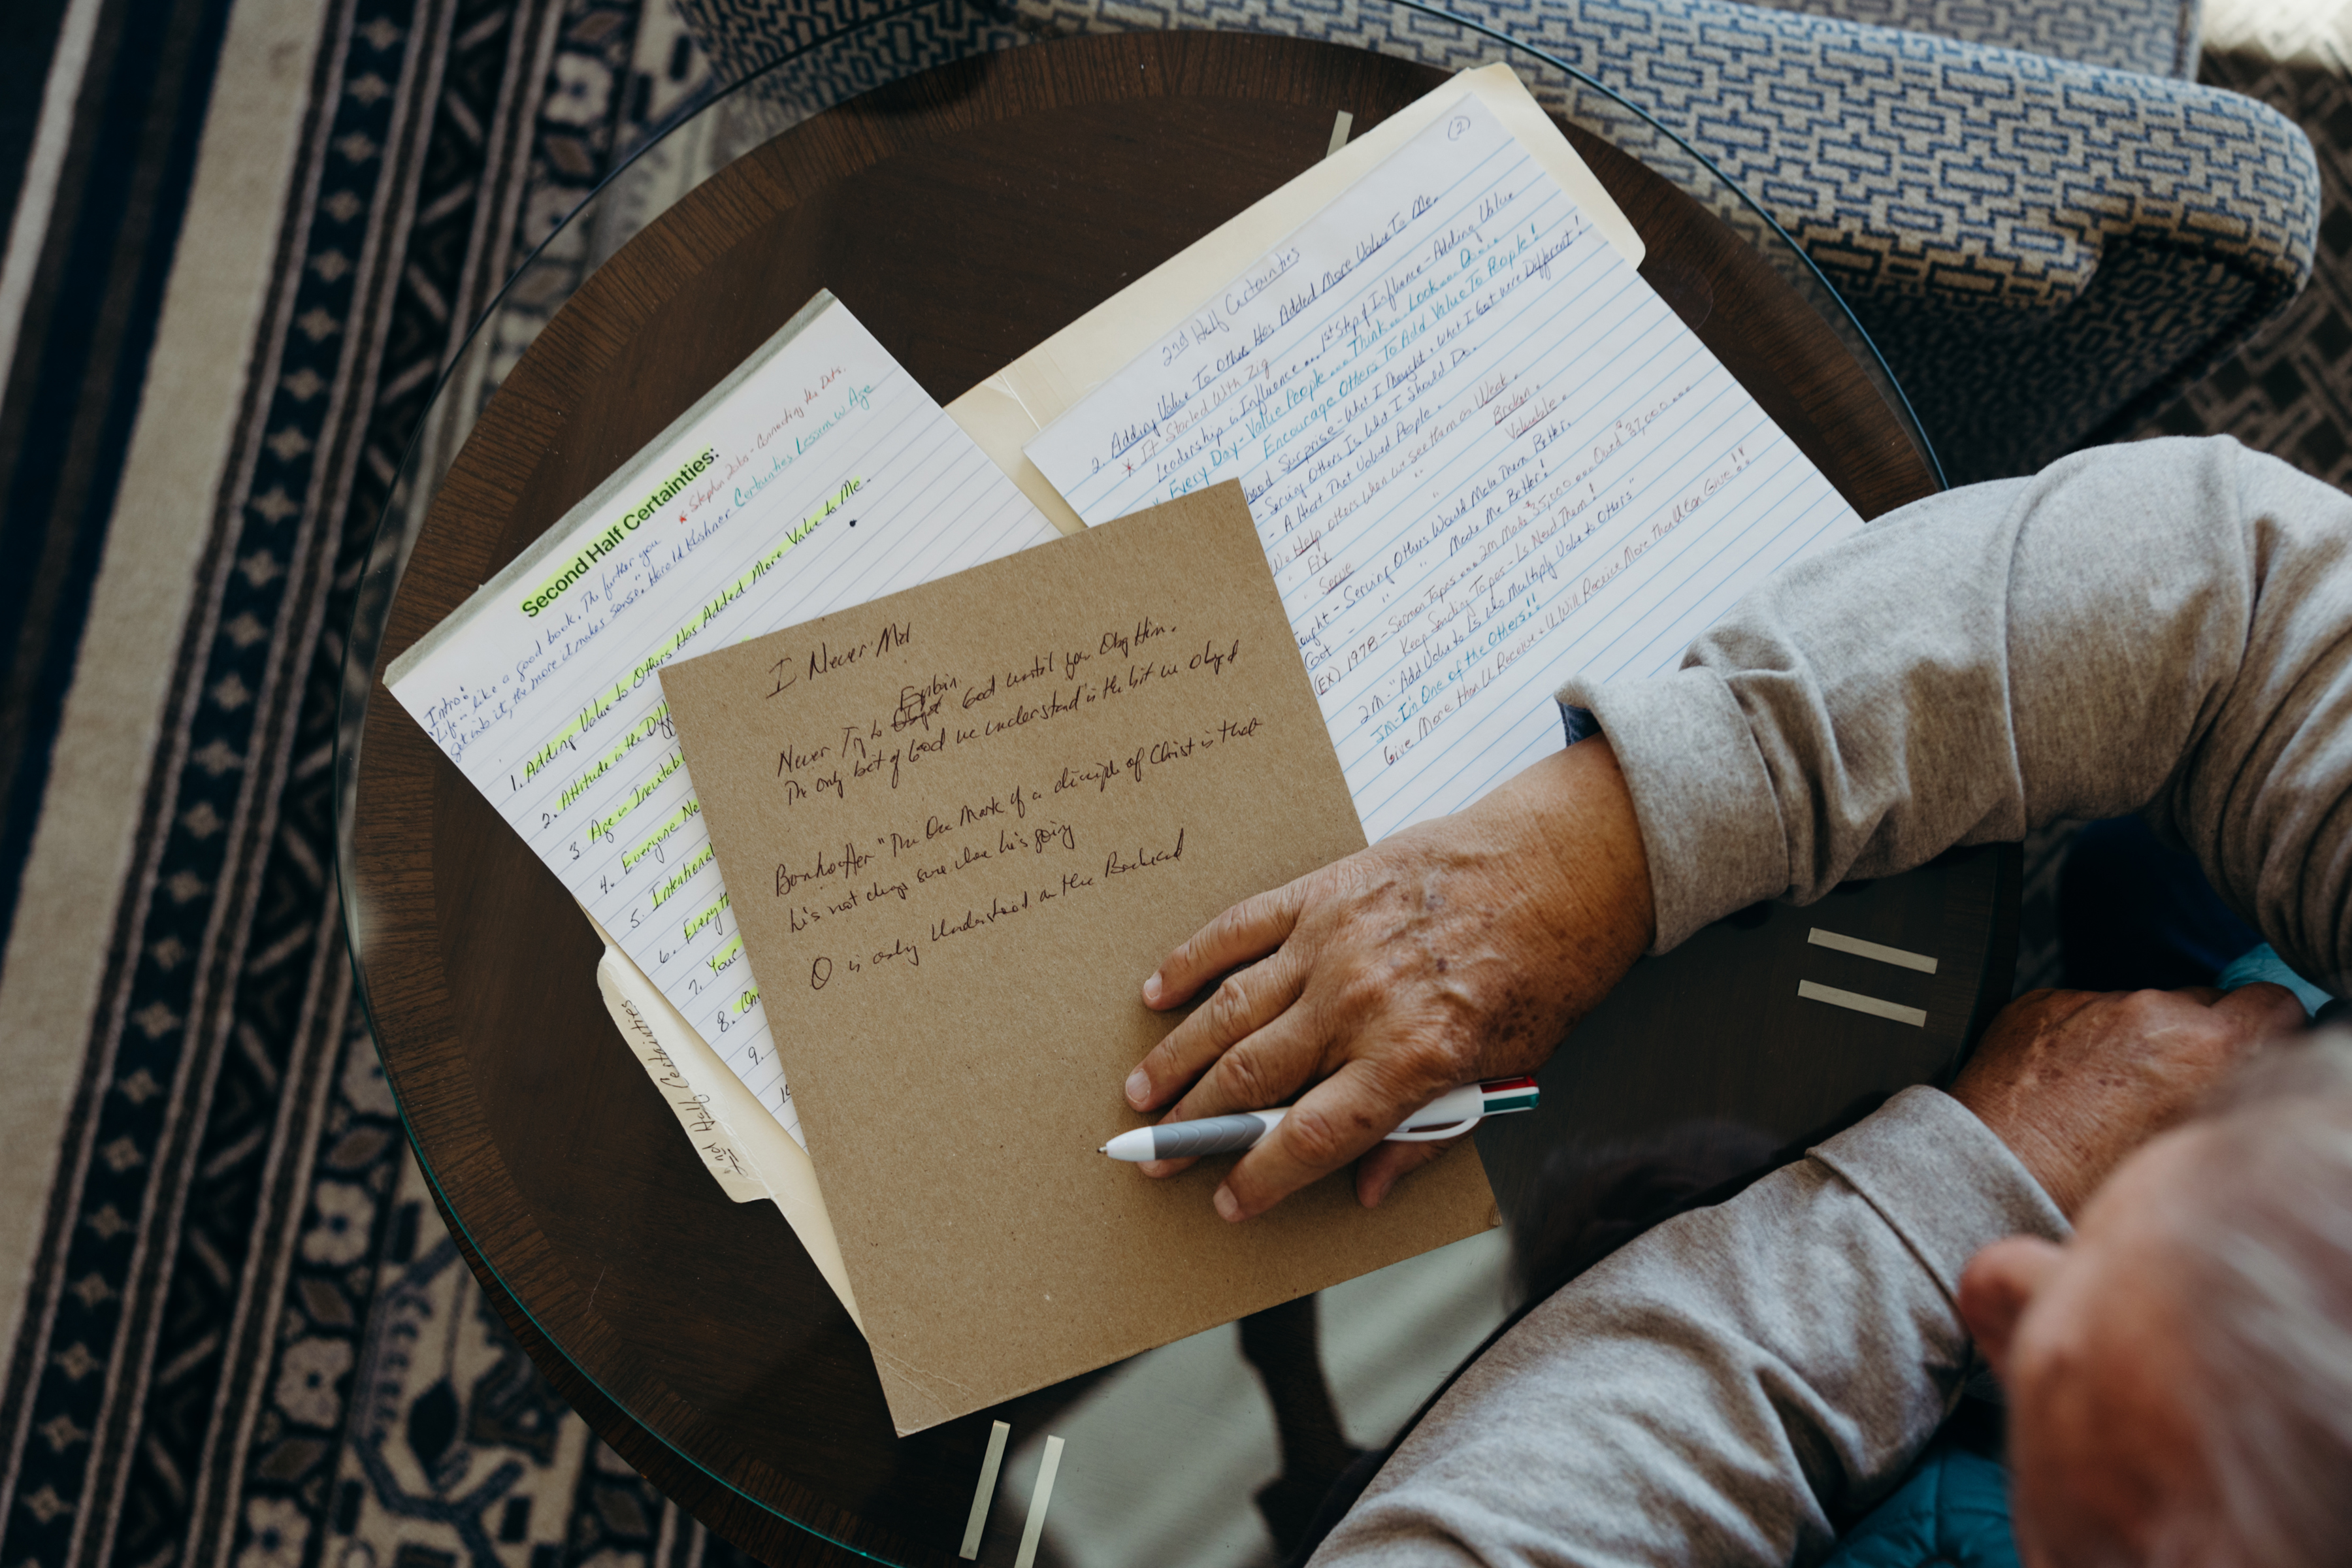 Second Half Certainties:
* Stephen Jobs - Connecting the Dots.
Intro: Certainties Lessen w Age
"Life is like a good book. The further you
get into it, the more it makes sense." Harold Kushner
1. Adding Value to Others Has Added More Value to Me.
2. Attitude is the Diff
3 Age is Inevitabl
4. Everyone Ne
5. Intentional
6. Everyth
7. Your
8. On
9.
10
2nd Half Certainties
I Never
Never Try to Explain God until you Obey Him.
The only bit of God we understand is the bit we obeyed
Bonhoeffer "The One Mark of a disciple of Christ is that
he's not always sure where he's going
O is only Understood on the Backend
(2)
2nd Half Certainties
2. Adding Value To Others Has Added More Value To Me.
* It Started With Zig
Leadership is Influence... 1st Step of Influence - Adding Value
Every Day - Value People... Think... Look... Do...
Encourage Others To Add Value To People!
hood Surprise - What I Thought & What I Got were Different!
- Serving Others Is What I Should Do.
- A Heart That Valued People.
We Help others when we see them as Weak.
" Fix " " Broken.
" Serve " " Valuable.
ought - Serving Others Would Make Them Better.
Got - " " Made Me Better!
(EX) 1978 - Sermon Tapes... 2m Made $35,000... Owed $37,000...
Keep Sending Tapes - Ls Need Them!
2M - "Add Value to Ls who Multiply Value to Others"
JM - I'm One of the Others!!
Give More than U Receive & U Will Receive More Than U Can Give!!